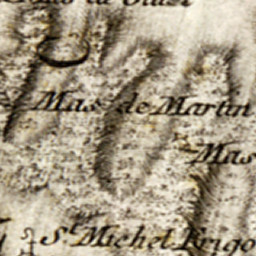 Mas de Martin
Mas
St Michel Frigo